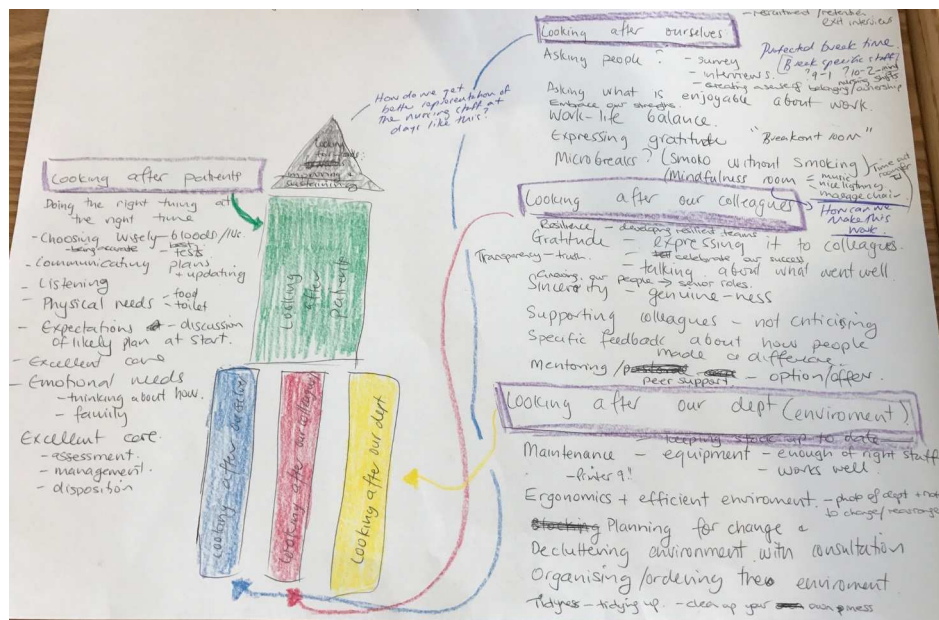 Looking after patients
Doing the right thing at
the right time
- Choosing Wisely - bloods/IVs.
- being accurate - best tests
- Communicating plans
+ updating
- Listening
- Physical needs - food
- toilet
- Expectations - discussion
of likely plan at start.
- Excellent care
- Emotional needs
- thinking about how.
- family
Excellent care.
- assessment
- management.
- disposition
How do we get
better representation of
the nursing staff at
days like this?
Looking
after
patients
Looking after ourselves
Looking after our colleagues
Looking after our dept
- recruitment/retention
exit interviews
Looking after ourselves
Asking people? - survey
- interviews.
- creating a sense of belonging/ownership
Protected break time.
Break specific staff
? 9-1 ? 10-2 - mid
nursing shifts
Asking what is enjoyable about work.
Embrace our strengths.
Work-life balance.
Expressing gratitude "Breakout room"
Microbreaks? (Smoko without smoking)
(Mindfulness room = music
- nice lighting
massage chair
Time out
room for
Looking after our colleagues
How can we
make this
work.
Resilience - developing resilient teams
Gratitude - expressing it to colleagues.
Transparency - truth.
- celebrate our success
- talking about what went well
Growing our people → senior roles.
Sincerity - genuine-ness
Supporting colleagues - not criticising
Specific feedback about how people
made a difference
Mentoring / peer support - option/offer
Looking after our dept (enviroment)
- keeping stock up to date
Maintenance - equipment - enough of right stuff
- Printer 9!! - works well.
Ergonomics + efficient enviroment. - photo of dept + not
to change/rearrange
Planning for change
Decluttering environment with consultation
Organising/ordering the enviroment
Tidyness - tidying up. - clean up your own mess